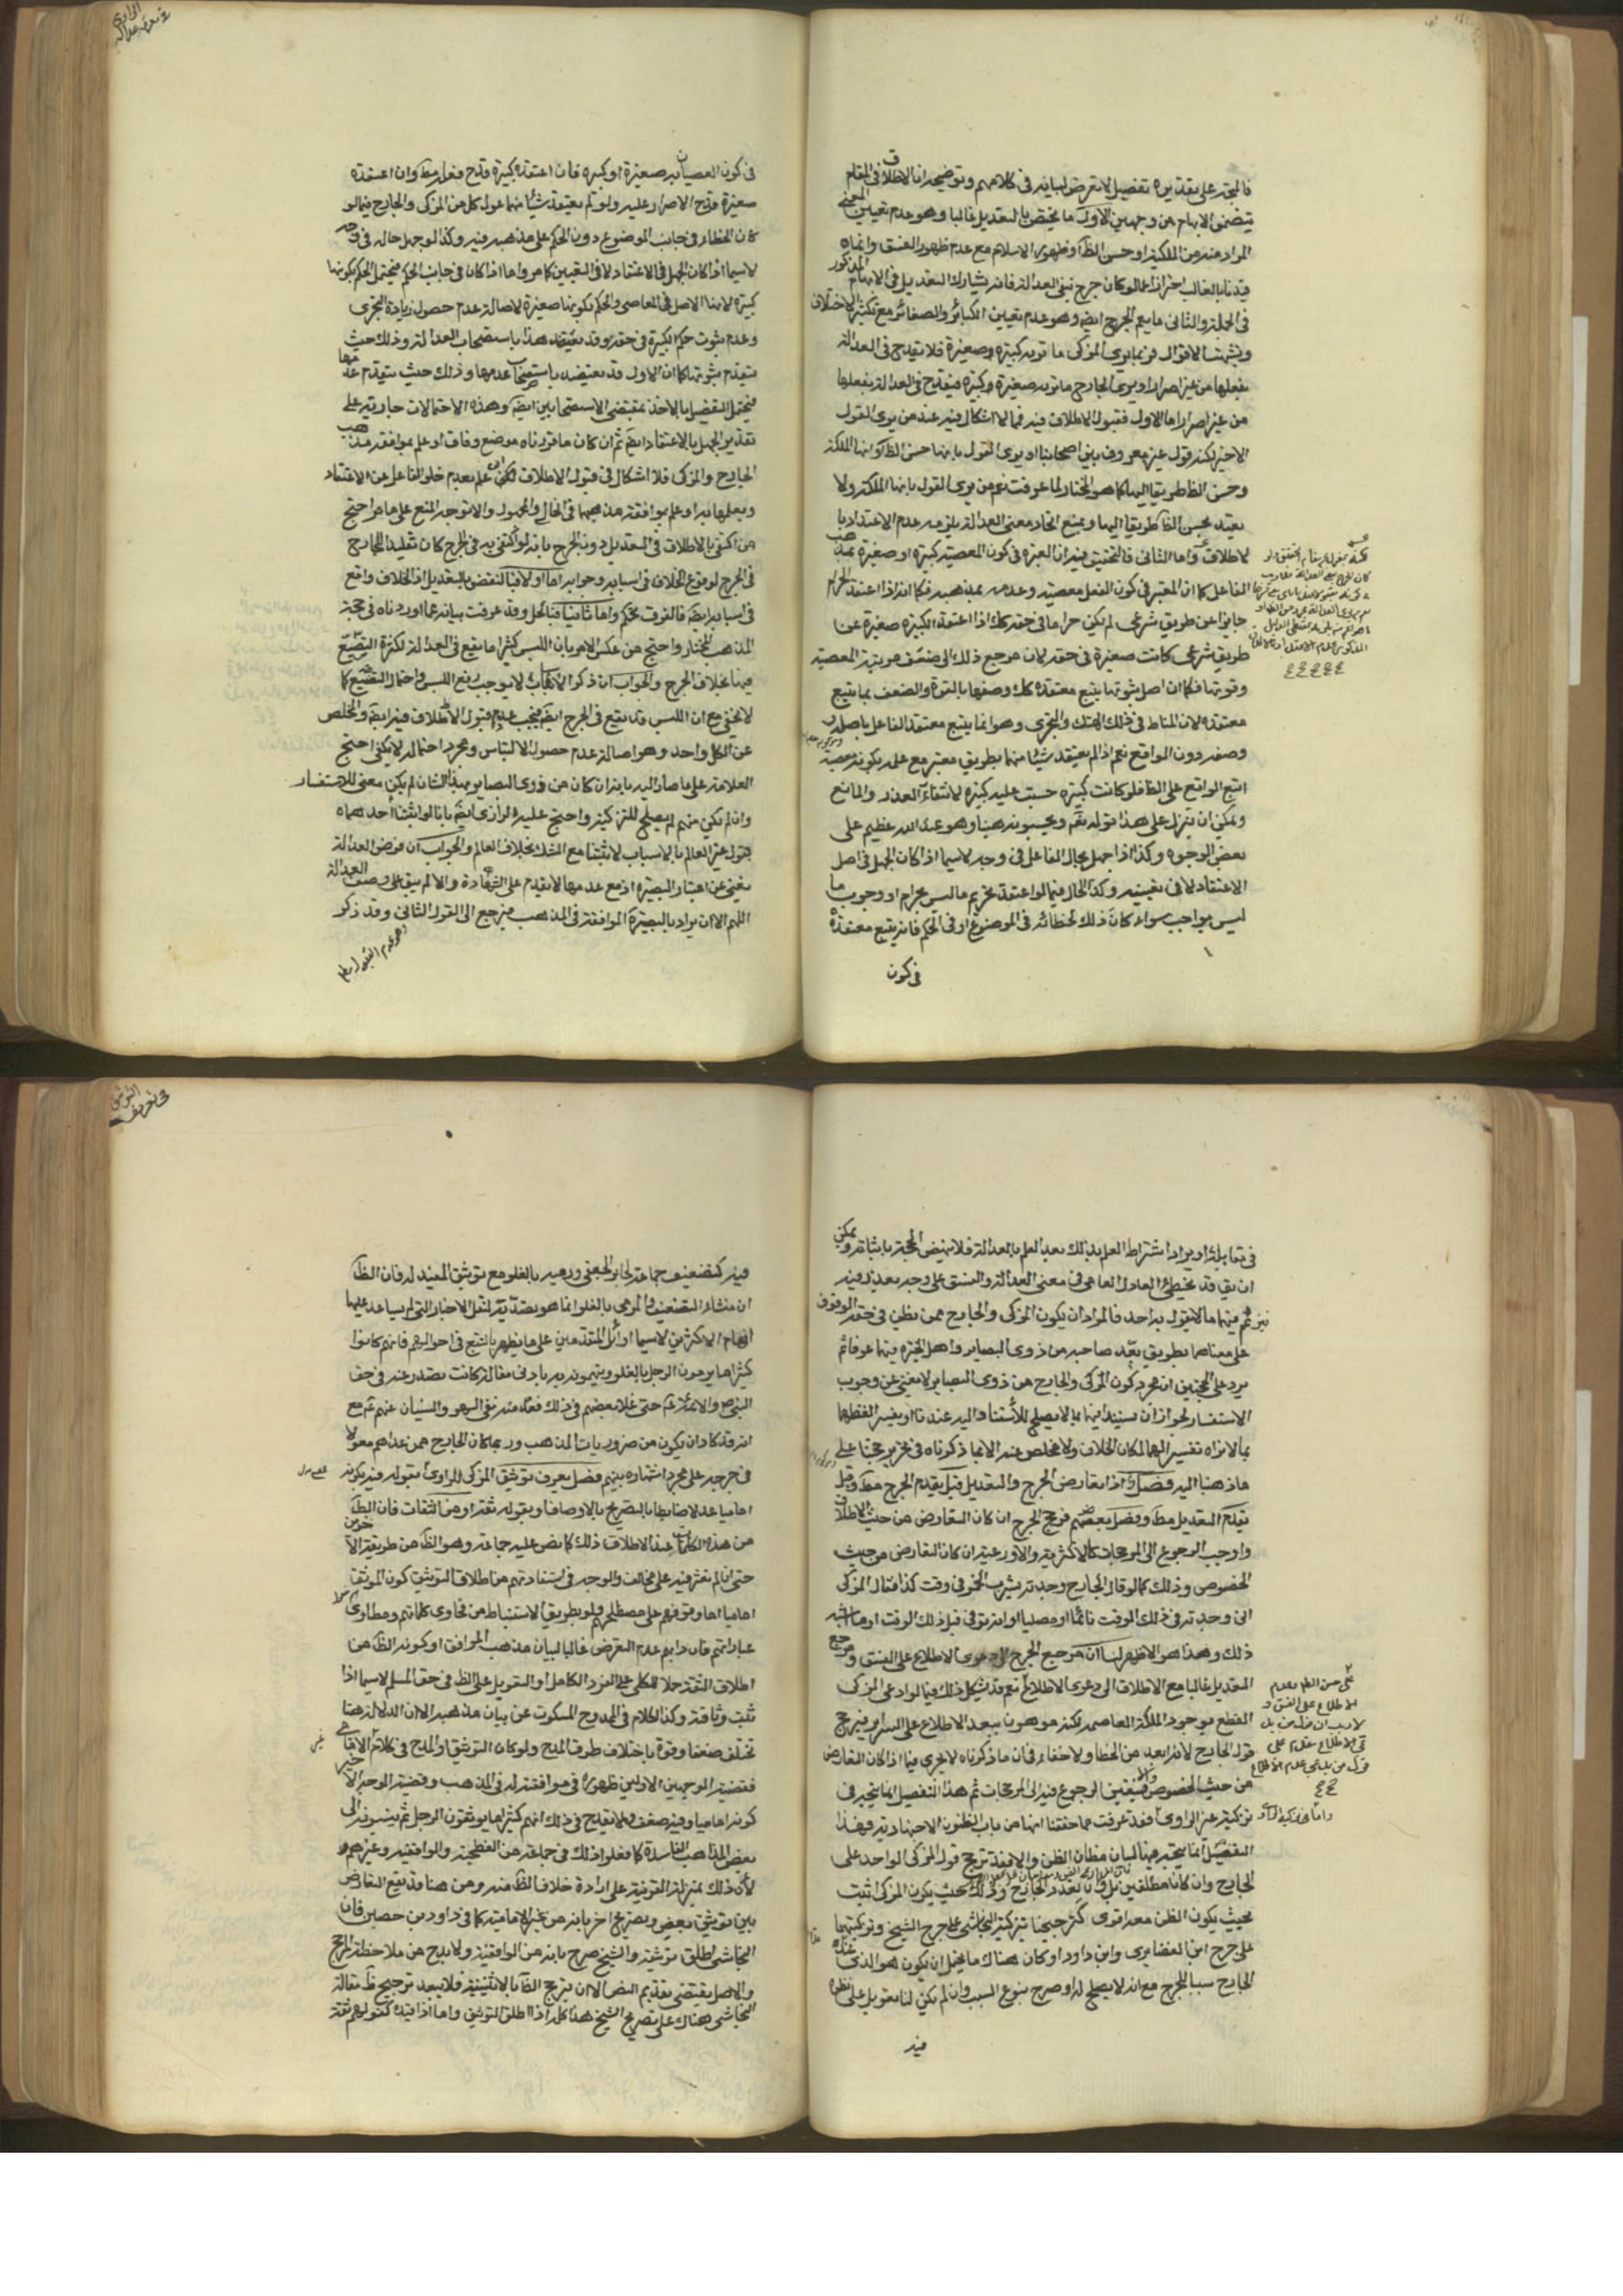 فالمتجه على تقديره تفصيل لا تعرض لبيانه في كلامهم وتوضيحه ان الاطلاق في المقام
يتضمن الابهام من وجهين الاول ما يختص بالتعديل غالبا وهو عدم تعيين المعنى
المراد منه من الملكة او حسن الظا او ظهور الاسلام مع عدم ظهور الفسق وانما
قيدنا بالغالب احترازا عما لو كان جرح بنفي العدالة فانه يشارك التعديل في الابهام المذكور
في الجملة والثاني ما يعم الجرح ايضا وهو عدم تعيين الكبائر والصغائر مع تكثر الاختلاف
وتشتت الاقوال فربما يرى المزكى ما تو به كبيرة صغيرة فلا تقدح في العدالة
بفعلها من غير اصرار او يرى الجارح ما تو به صغيرة كبيرة فيقدح في العدالة بفعلها
من غير اصرار اما الاول فقبول الاطلاق فيه فمما لا اشكال فيه عند من يرى القول
الاخير لكنه قول غير معروف بين اصحابنا او يرى القول بانها حسن الظ او انها الملكة
وحسن الظا طريقا اليها كما هو المختار لما عرفت نعم من يرى القول بانها الملكة ولا
يعتد بحسن الظا طريقا اليها ويمنع اتحاد معنى العدالة يلزمه عدم الاعتداد با
لاطلاق واما الثاني فالتحقيق فيه ان العبرة في كون المعصية كبيرة او صغيرة بمذهب
الفاعل كما ان المعتبر في كون الفعل معصية وعدمه بمذهبه فكما انه اذا اعتقد الحرام
جايزا عن طريق شرعي لم يكن حراما في حقه كك اذا اعتقد الكبيرة صغيرة عن
طريق شرعي كانت صغيرة في حقه لان مرجع ذلك الى ضعف مرتبة المعصية
وقوتها فكما ان اصل ثبوتها يتبع معتقده كك وصفها بالقوة والضعف بما يتبع
معتقده لان المناط في ذلك الهتك والتجرى وهو انما يتبع معتقد الفاعل باصله و
وصفه دون الواقع نعم اذا لم يعتقد شيئا منهما بطريق معتبر مع علمه بكونه معصية
اتبع الواقع على الظ فلو كانت كبيرة حسبت عليه كبيرة لانتفاء العذر والمانع
ويمكن ان ينزل على هذا قوله تعم ويحسبونه هينا وهو عند الله عظيم على
بعض الوجوه وكذا اذا جهل بحال الفاعل في وجه لاسيما اذا كان الجهل في اصل
الاعتقاد لا في تعيينه وكذا الحال فيما لو اعتقد تحريم ما ليس بحرام او وجوب ما
ليس بواجب سواء كان ذلك لخطائه في الموضوع او في الحكم فانه يتبع معتقده
في كون
في كون العصيان به صغيرة او كبيره فان اعتقده كبيرة قدح فعله مط وان اعتقده
صغيرة قدح الاصرار عليه ولو لم يعتقد شيئا منهما عول كل من المزكى والجارح فيما لو
كان الخطاء في جانب الموضوع دون الحكم على مذهبه فيه وكذا لو جهل حاله في وجه
لاسيما اذا كان الجهل في الاعتقاد لا في التعيين كما مر واما اذا كان في جانب الحكم فيحتمل الحكم بكونها
كبيرة لانها الاصل في المعاصى والحكم بكونها صغيرة لاصالة عدم حصول زيادة التجرى
وعدم ثبوت حكم الكبيرة في حقه وقد يعتضد هذا باستصحاب العدالة وذلك حيث
يتقدم ثبوتها كما ان الاول قد يعتضد باستصحاب عدمها وذلك حيث يتقدم عدمها
فيحتمل التفصيل بالاخذ بمقتضى الاستصحابين ايضا وهذه الاحتمالات جارية على
تقدير الجهل بالاعتقاد ايضا ثم ان كان ما قررناه موضع وفاق او علم بموافقة مذهب
الجارح والمزكى فلا اشكال في قبول الاطلاق لكن ان علم بعدم خلو الفاعل عن الاعتقاد
وبعملها به او علم بموافقة مذهبهما في الخالي والمجهول والا توجه المنع على ما مر احتج
من اكتفى بالاطلاق في التعديل دون الجرح بانه لو اكتفى به في الجرح كان تقليدا للجارح
في الجرح لوقوع الخلاف في اسبابه وجوابه اما اولا فبالنقض بالتعديل اذ الخلاف واقع
في اسبابه ايضا فالفرق تحكم واما ثانيا فبالحل وقد عرفت بيانه مما اوردناه في حجة
المذهب المختار واحتج من عكس الامر بان اللبس كثيرا ما يقع في العدالة لكثرة التصنع
فيها بخلاف الجرح والجواب ان ذكر الاسباب لا يوجب رفع اللبس واحتمال التصنع كما
لا يخفى مع ان اللبس قد يقع في الجرح ايضا فيجب عدم قبول الاطلاق فيه ايضا والمخلص
عن الكل واحد وهو اصالة عدم حصول الالتباس ومجرد احتماله لا يكفى احتج
العلامة على ما صار اليه بانه ان كان من ذوى البصاير بهذا الشان لم يكن معنى للاستفسار
وان لم يكن منهم لم يصلح للتزكية واحتج عليه الرازى ايضا بانا لو اثبتنا احدهما
بقول غير العالم بالاسباب لاثبتنا مع الشك بخلاف العالم والجواب ان فرض العدالة
يغنى عن اعتبار البصيرة اذ مع عدمها لا يقدم على الشهادة والا لم يبق على وصف العدالة
اللهم الا ان يراد بالبصيرة الموافقة في المذهب فيرجع الى القول الثانى وقد ذكر
في مقابله او يراد اشتراط العلم بذلك بعد العلم بالعدالة فلا تنهض الحجة باثباته ويمكن
ان يقا قد يخطئ العادل العامى في معنى العدالة والفسق على وجه يعذر فيه
فيزعم فيهما ما لا يقول به احد فالمراد ان يكون المزكى والجارح ممن يظن في حقه الوقوف
على معناهما بطريق يعد صاحبه من ذوى البصاير واهل الخبرة فيهما عرفا ثم
يرد على الحجتين ان مجرد كون المزكى والجارح من ذوى البصاير لا يغنى عن وجوب
الاستفسار لجواز ان يستند فيهما بما لا يصلح للاستناد اليه عندنا او يفسر لفظهما
بما لا نراه تفسيرا لهما لمكان الخلاف ولا مخلص عنه الا بما ذكرناه في تحرير حجتنا على
ما ذهبنا اليه فصل اذا تعارض الجرح والتعديل قيل يقدم الجرح مط وقيل
يقدم التعديل مط وفصل بعضهم فرجح الجرح ان كان التعارض من حيث الاطلاق
واوجب الرجوع الى المرجحات كالاكثرية والاورعية ان كان التعارض من حيث
الخصوص وذلك كما لو قال الجارح وجدته يشرب الخمر في وقت كذا فقال المزكى
انى وجدته في ذلك الوقت نائما او مصليا او انه توفى قبل ذلك الوقت او ما اشبه
ذلك وهذا هو الاظهر لنا ان مرجع الجرح الى دعوى الاطلاع على الفسق ومرجع
التعديل غالبا مع الاطلاق الى دعوى الاطلاع نعم قد يشكل ذلك فيما لو ادعى المزكى
القطع بوجود الملكة العاصمة لكنه موهون ببعد الاطلاع على السراير فيرجح
قول الجارح لانه ابعد من الخطا ولا خفاء في ان ما ذكرناه لا يجرى فيما اذا كان التعارض
من حيث الخصوص فيتعين الرجوع فيه الى المرجحات ثم هذا التفصيل انما يتجه في
تزكية غير الراوى فقد عرفت مما حققنا انها من باب الظنون الاجتهادية فهذا
التفصيل انما يتجه فيها لبيان مظان الظن والا فقد يرجح قول المزكى الواحد على
الجارح وان كانا مطلقين بل وان تعدد الجارح وذلك حيث يكون المزكى اثبت
بحيث يكون الظن معه اقوى كترجيحنا تزكية النجاشى على جرح الشيخ وتزكيتهما
على جرح ابن الغضايرى وابن داود او كان هناك ما يحتمل ان يكون هو الذى عده
الجارح سببا للجرح مع انه لا يصلح له او صرح بنوع السبب وان لم يكن لنا تعويل على نظره
فيه
فيه كتضعيف جماعة لجابر الجعفى ورميه بالغلو مع توثيق المفيد له فان الظا
ان منشاء التضعيف والرمى بالغلو انما هو تصديه لنقل الاخبار التى لم يساعد عليها
افهام الاكثرين لاسيما اوائل المتقدمين على ما يظهر بالتتبع في احوالهم فانهم كانوا
كثيرا ما يرمون الرجل بالغلو ويتهمونه به بادنى مقالة كانت تصدر عنه في حق
النبى ص والائمة ع حتى غلا بعضهم في ذلك فعد منه نفى السهو والنسيان عنهم ع مع
انه قد كاد ان يكون من ضروريات المذهب وربما كان الجارح ممن عداهم معولا
في جرحه على مجرد اشتهاره بينهم فصل يعرف توثيق المزكى للراوى بقوله فيه بكونه
اماميا عدلا ضابطا بالتصريح بالاوصاف او بقوله ثقة او من الثقات فان الظا
من هذه الكلمات عند الاطلاق ذلك كما نص عليه جماعة وهو الظا من طريقة الاخرين
حتى انا لم نعثر فيه على مخالف والوجه في استفادتهم من اطلاق التوثيق كون الموثق
اماميا اما وقوفهم على مصطلحهم ولو بطريق الاستنباط من فحاوى كلماتهم ومطاوى
عباراتهم فان دابهم عدم التعرض غالبا لبيان مذهب الموافق او كونه الظا من
اطلاق الثقة حملا للمكلى على الفرد الكامل او التعويل على الظ في حق المسلم لاسيما اذا
ثبت وثاقته وكذا الكلام في الممدوح المسكوت عن بيان مذهبه الا ان الدلالة هنا
تختلف ضعفا وقوة باختلاف طرق المدح ولو كان التوثيق او المدح في كلام
فقضية الوجهين الاولين ظهوره في موافقته له في المذهب وقضية الوجه الاخير
كونه اماميا وفيه ضعف ولا يقدح في ذلك انهم كثيرا ما يوثقون الرجل ثم ينسبونه الى
بعض المذاهب الفاسدة كما فعلوا ذلك في جماعة من الفطحية والواقفية وغيرهم
لان ذلك بمنزلة القرينة على ارادة خلاف الظا منه ومن هنا قد يقع التعارض
بين توثيق بعض وتصريح اخر بانه من غير الامامية كما في داود بن حصين فان
النجاشى اطلق توثيقه والشيخ صرح بانه من الواقفية ولا بد ح من ملاحظة المرجح
والاصل يقتضى تقديم النص الا ان يرجح الظا بالاثبتية فلا يبعد ترجيح ظ مقالة
النجاشى هناك على تصريح الشيخ هذا كله اذا اطلق التوثيق واما اذا قيد كقولهم ثقة